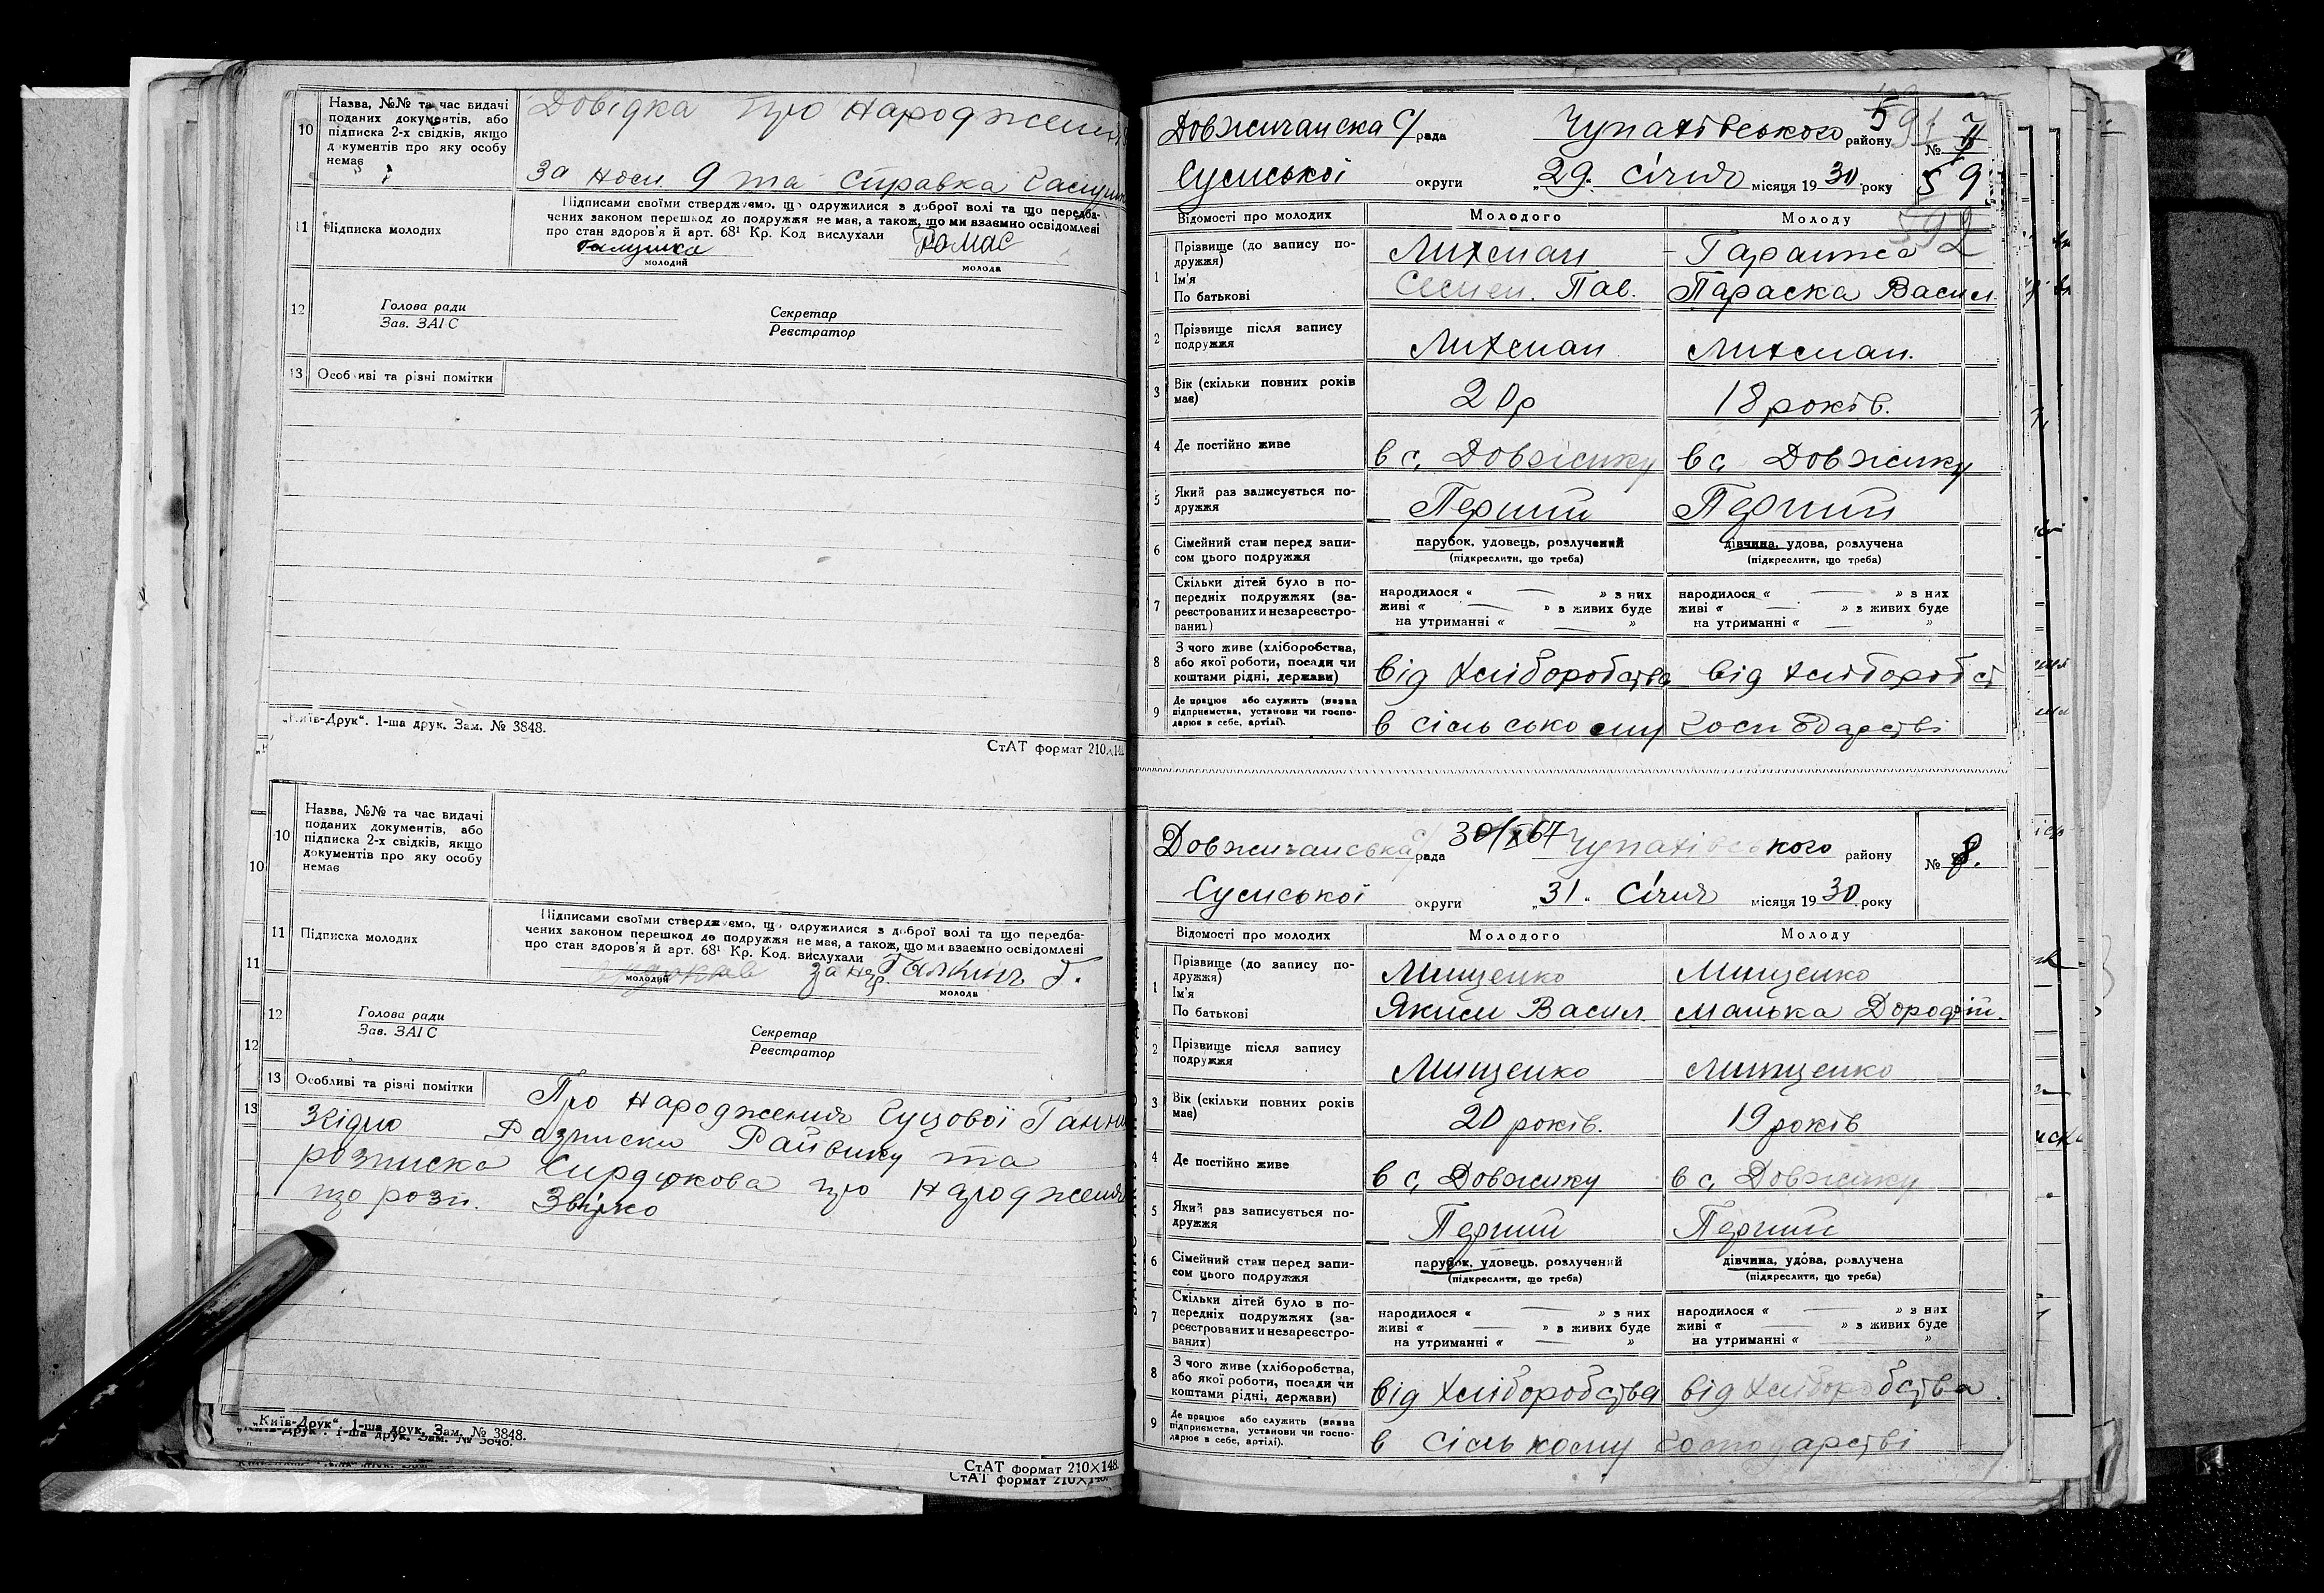 10
Назва, №№ та час видачі
поданих документів, або
підписка 2-х свідків, якщо
документів про яку особу
немає
Довідка про народження
за носи 9 та справка
11
Підписка молодих
Підписами своїми стверджуємо, що одружилися з доброї волі та що передба-
чених законом перешкод до подружжя не має, а також, що ми взаємно освідомлені
про стан здоров'я й арт. 68¹ Кр. Код вислухали
Галушка
молодий
молода
12
Голова ради
Зав. ЗАГС
Секретар
Реєстратор
13
Особливі та різні помітки
„Київ-Друк“. 1-ша друк. Зам. № 3848.
СтАТ формат 210×148
10
10
Назва, №№ та час видачі
поданих документів, або
підписка 2-х свідків, якщо
документів про яку особу
немає
11
11
Підписка молодих
Підписами своїми стверджуємо, що одружилися з доброї волі та що передба-
чених законом перешкод до подружжя не має, а також, що ми взаємно освідомлені
про стан здоров'я й арт. 68¹ Кр. Код. вислухали
молодий
за нер. Г.
молода
12
12
Голова ради
Зав. ЗАГС
Секретар
Реєстратор
13
13
Особливі та різні помітки
Про народження Сущової Ганни
Згідно Розписки Райвику та
розписка Сирдюкова про народження
що розп.
„Київ-Друк“. 1-ша друк. Зам. № 3848.
СтАТ формат 210×148.
Довжичанска с/рада Чупахівського району
№ 7
Сумської округи „29“ Січня місяця 1930 року
59
Відомості про молодих
Молодого
Молоду
1
Прізвище (до запису по-
дружжя)
Ім'я
По батькові
Лихман
Семен. Пав.
Параска Васил.
2
Прізвище після запису
подружжя
Лихман
Лихман.
3
Вік (скільки повних років
має)
20 р
18 років.
4
Де постійно живе
в с, Довжику
в с, Довжику
5
Який раз записується по-
дружжя
Перший
Перший
6
Сімейний стан перед запи-
сом цього подружжя
парубок, удовець, розлучений
(підкреслити, що треба)
дівчина, удова, розлучена
(підкреслити, що треба)
7
Скільки дітей було в по-
передніх подружжях (за-
реєстрованих и незареєстро-
ваних)
народилося « — » з них
живі « — » з живих буде
на утриманні « — »
народилося « — » з них
живі « — » з живих буде
на утриманні « — »
8
З чого живе (хліборобства,
або якої роботи, посади чи
коштами рідні, держави)
від хліборобства
від хліборобст
9
Де працює або служить (назва
підприємства, установи чи госпо-
дарює в себе, артілі).
в сільському господарстві
Довжичанська с/рада 30/X 67 Чупахівського району
№ 8.
Сумської округи „31“ Січня місяця 1930 року
Відомості про молодих
Молодого
Молоду
1
Прізвище (до запису по-
дружжя)
Ім'я
По батькові
Мищенко
Яким Васил.
Мищенко
Манька Дорофій.
2
Прізвище після запису
подружжя
Мищенко
Мищенко
3
Вік (скільки повних років
має)
20 років.
19 років
4
Де постійно живе
в с, Довжику
в с, Довжику
5
Який раз записується по-
дружжя
Перший
Перший
6
Сімейний стан перед запи-
сом цього подружжя
парубок, удовець, розлучений
(підкреслити, що треба)
дівчина, удова, розлучена
(підкреслити, що треба)
7
Скільки дітей було в по-
передніх подружжях (за-
реєстрованих и незареєстро-
ваних)
народилося « — » з них
живі « — » з живих буде
на утриманні « — »
народилося « — » з них
живі « — » з живих буде
на утриманні « — »
8
З чого живе (хліборобства,
або якої роботи, посади чи
коштами рідні, держави)
від хліборобства
від хліборобства.
9
Де працює або служить (назва
підприємства, установи чи госпо-
дарює в себе, артілі).
в сількому господарстві